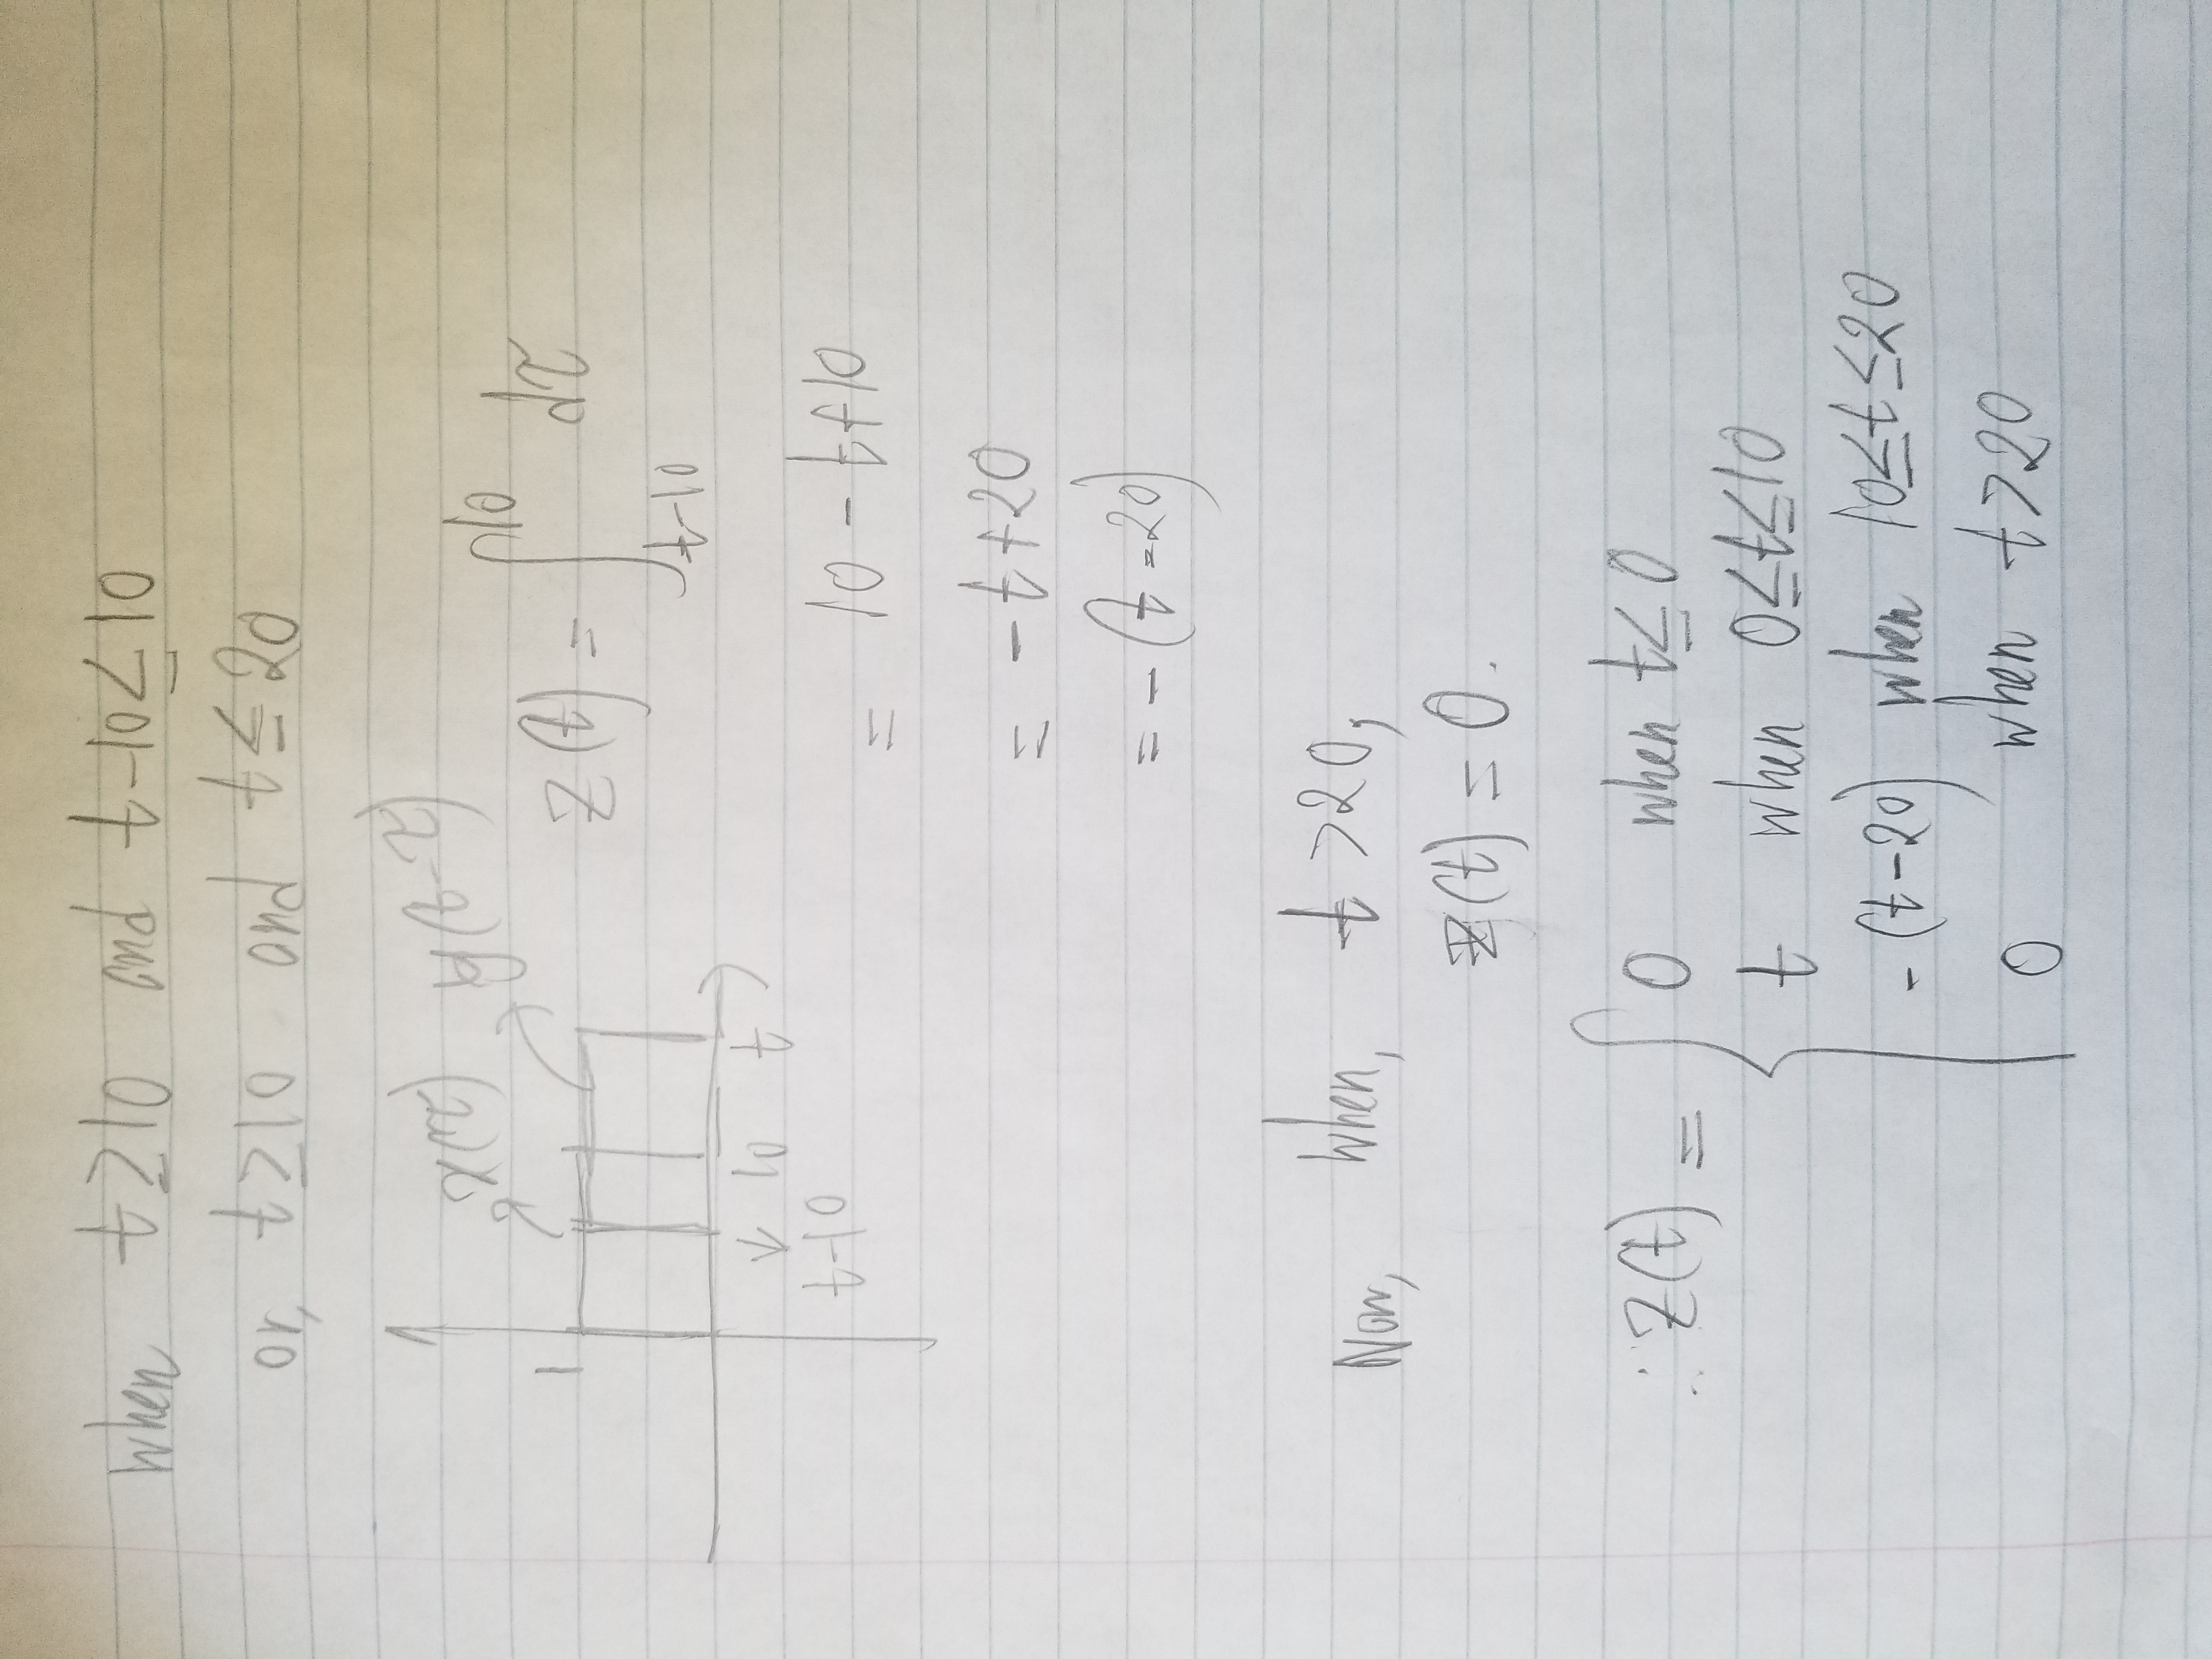 when t ≥ 10 and t - 10 ≤ 10
or, t ≥ 10 and t ≤ 20
x(τ) y(t-τ)
1
z(t) = ∫_{t-10}^{10} dτ
10 t
t-10
= 10 - t + 10
= -t + 20
= -(t - 20)
Now, when, t > 20,
z(t) = 0.
∴ z(t) = { 0 when t ≤ 0
t when 0 ≤ t ≤ 10
-(t-20) when 10 ≤ t ≤ 20
0 when t > 20